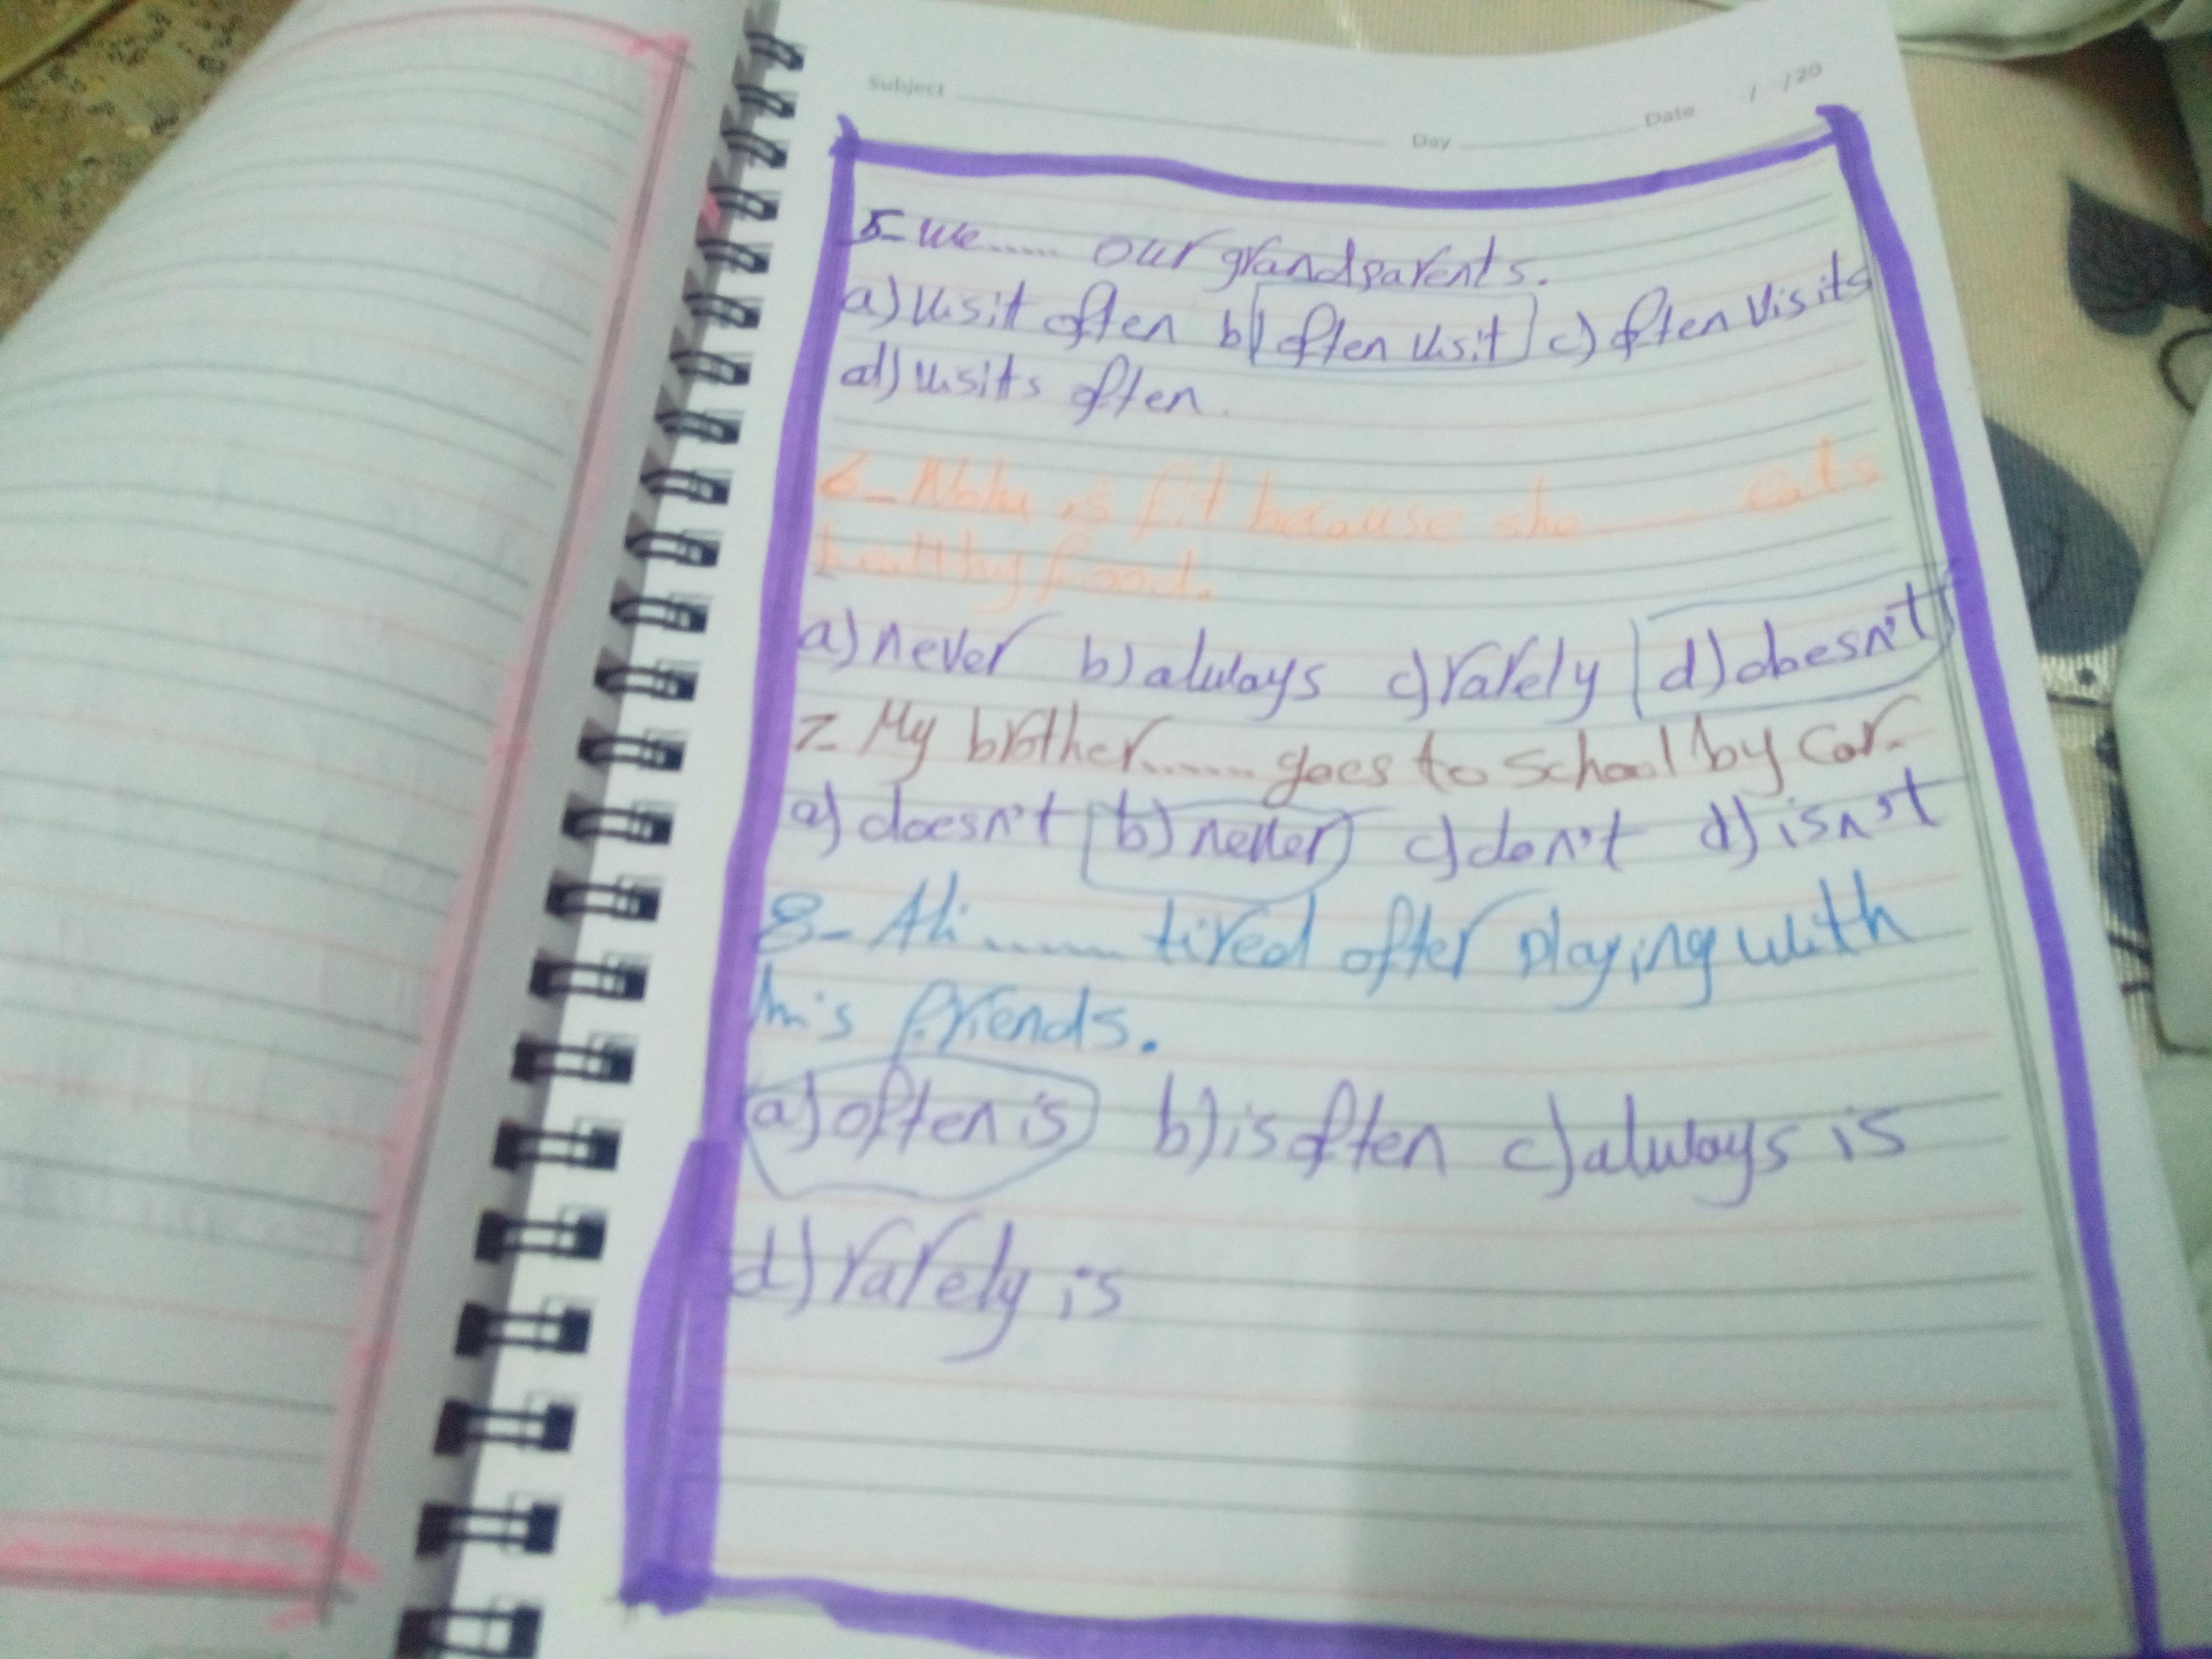 Subject Day Date / /20
5- we ..... our grandparents.
a) visit often b) often visit c) often visits
d) visits often.
6- Noha is fit because she ...... eats
healthy food.
a) never b) always c) rarely d) doesn't
7- My brother ...... goes to school by car.
a) doesn't b) never c) don't d) isn't
8- Ali ...... tired after playing with
his friends.
a) often is b) is often c) always is
d) rarely is